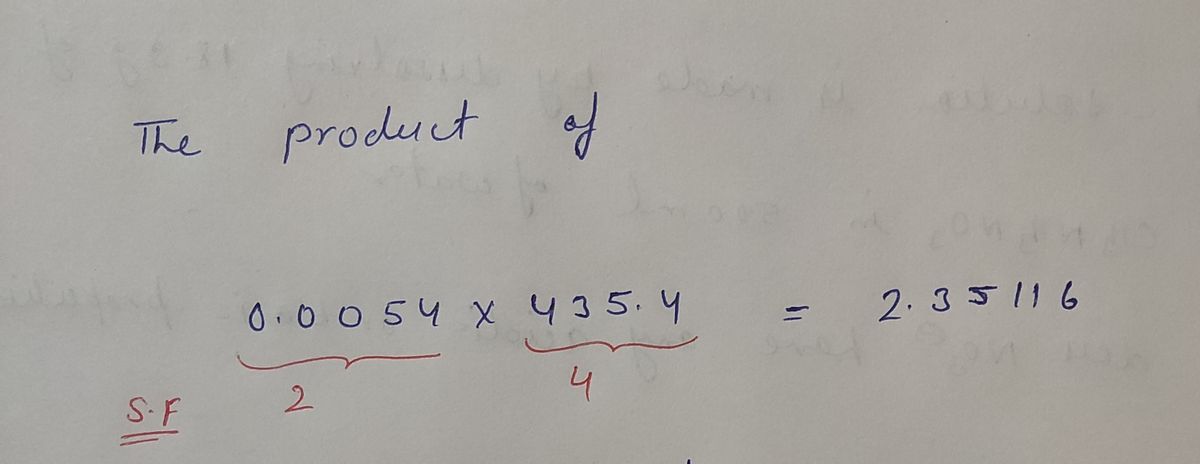 The product of
0.0054 x 435.4 = 2.35116
S.F 2 4